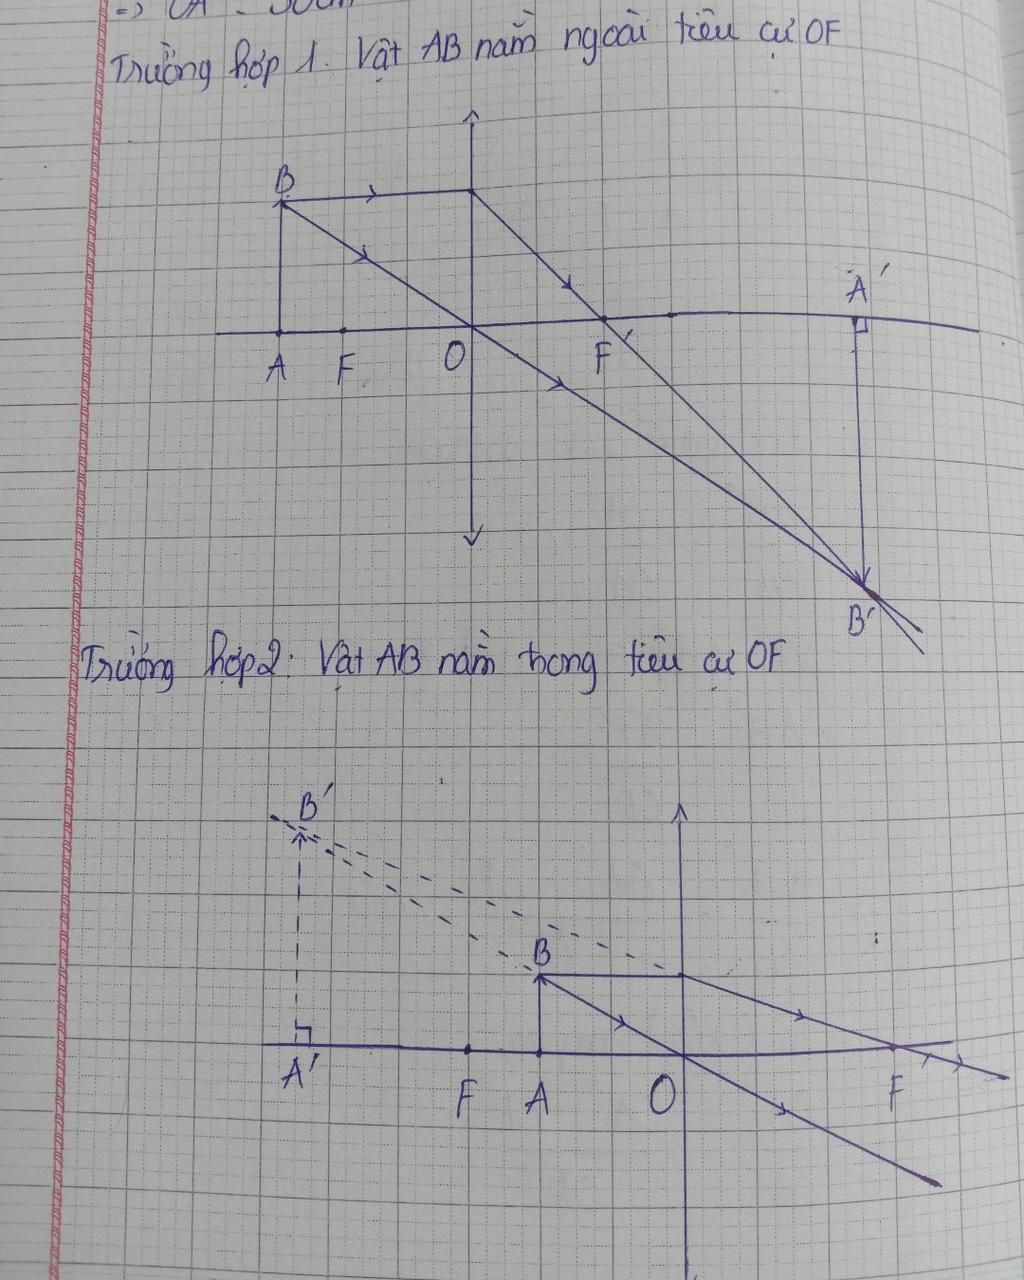 Trường hợp 1. Vật AB nằm ngoài tiêu cự OF
B
A'
A F O F'
B'
Trường hợp 2: Vật AB nằm trong tiêu cự OF
B'
B
A' F A O F